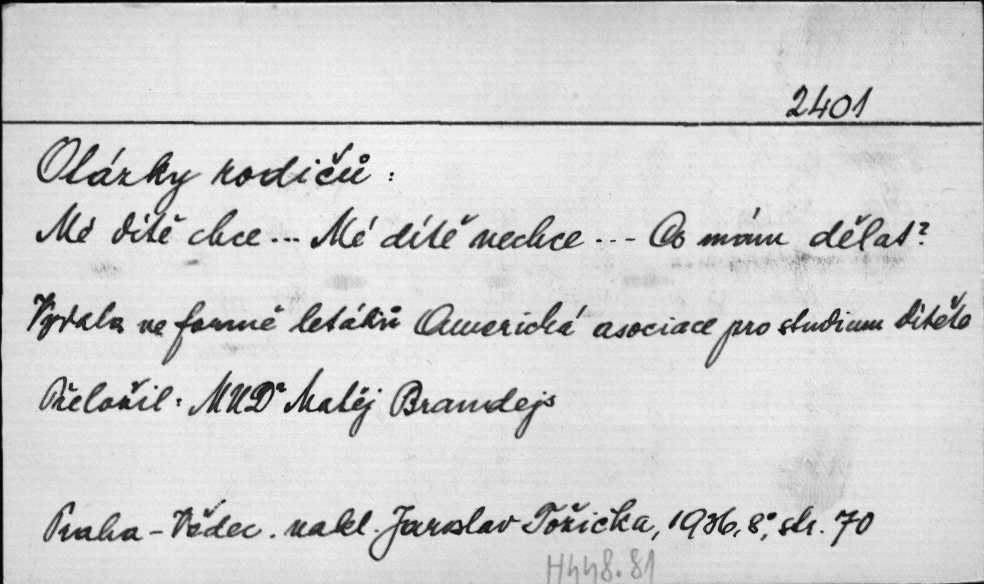 2401
Otázky rodičů:
Mé dítě chce... Mé dítě nechce... Co mám dělat?
Vydala ve formě letáků Americká asociace pro studium dítěte
Přeložil: MUDr Matěj Brandejs
Praha - Vědec. nakl. Jaroslav Tožička, 1936, 8°, str. 70
H448.81